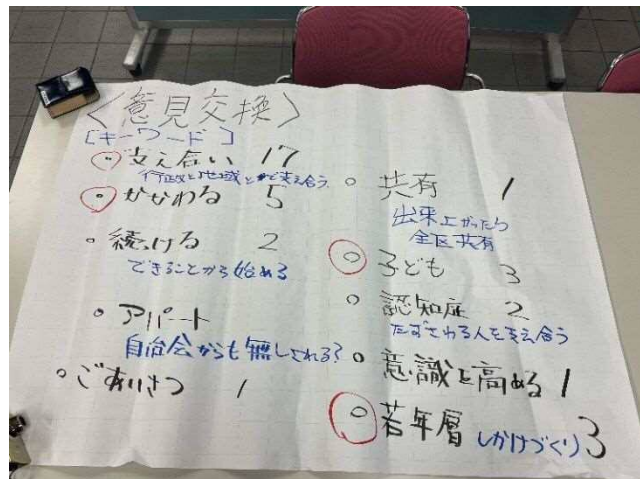 〈意見交換〉
[キーワード]
○支え合い 17
行政と地域とで支え合う
○かかわる 5
○続ける 2
できることから始める
○アパート
自治会からも無しされる?
○ごあいさつ 1
○共有 1
出来上がったら
全区共有
○子ども 3
○認知症 2
たずさわる人を支え合う
○意識を高める 1
○若年層 しかけづくり 3